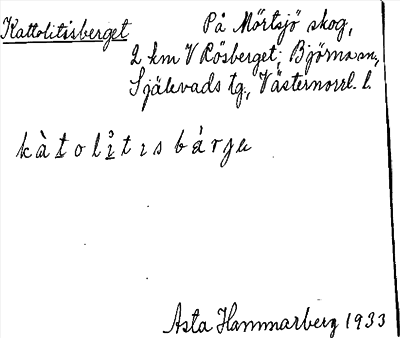 Kattolitisberget På Mörtsjö skog,
2 km V Rösberget; Björna sn,
Själevads tg., Västernorrl. l.
kàtolítısbárjə
Asta Hammarberg 1933